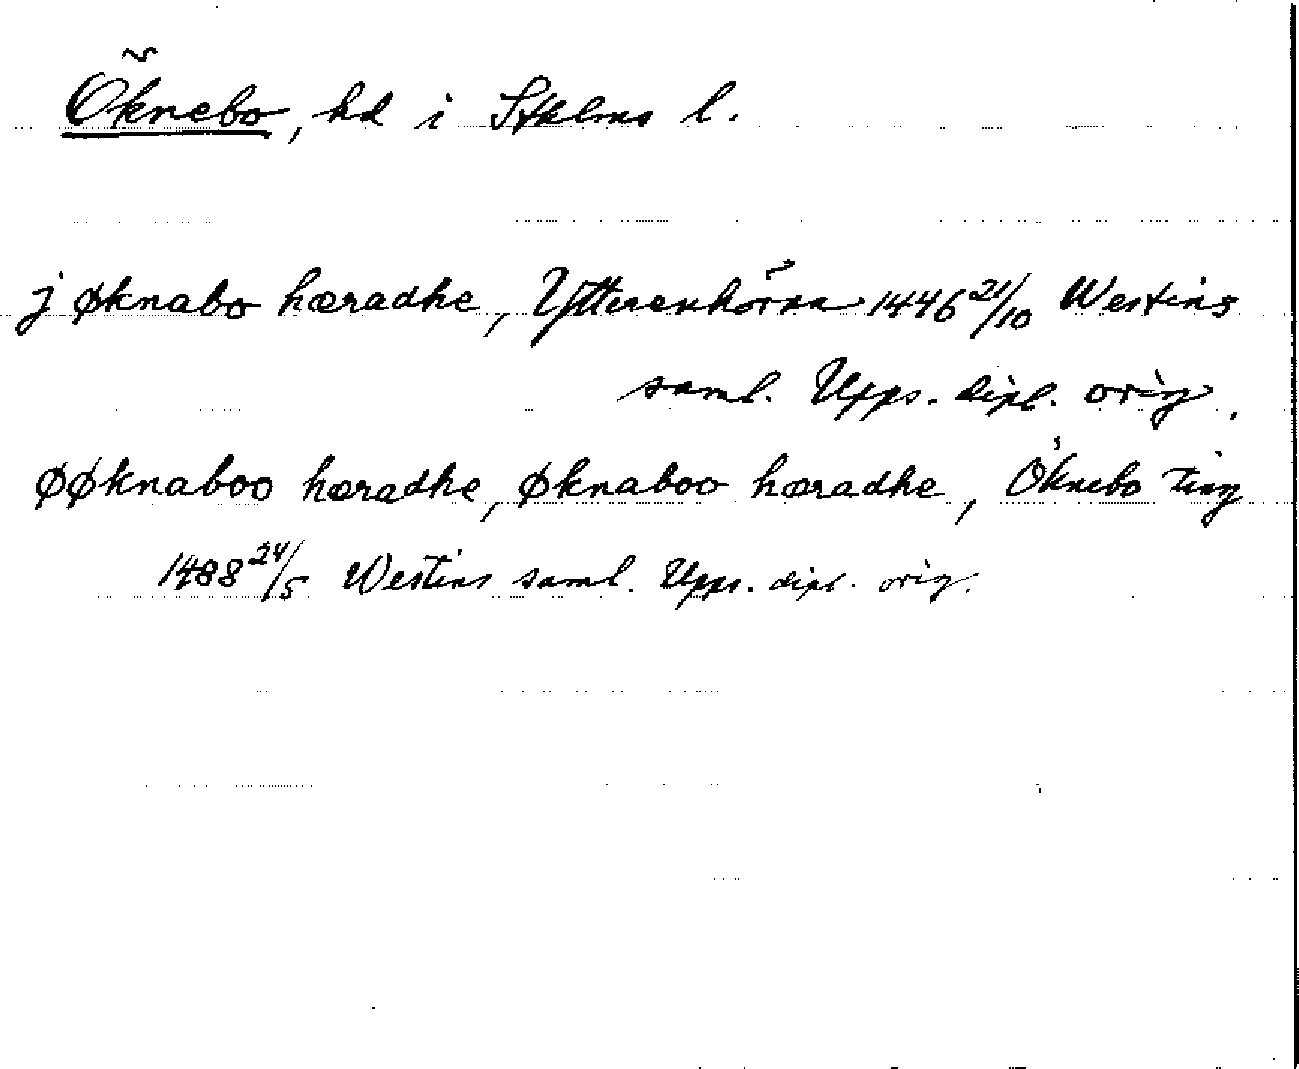 Öknebo, hd i Stklms l.
j øknabo hæradhe, Ytterenhörna 1446 21/10 Westins
saml. Upps. dipl. orig.
øøknaboo hæradhe, øknaboo hæradhe, Öknebo ting
1488 24/5 Westins saml. Upps. dipl. orig.